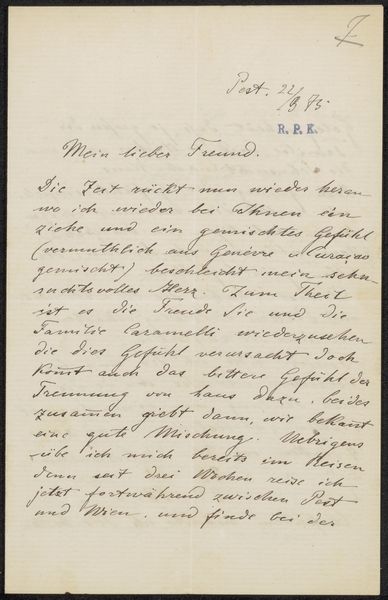 7
Pest. 22/3 75.
R.P.K.
Mein lieber Freund.
Die Zeit rückt nun wieder heran
wo ich wieder bei Ihnen ein
ziehe und ein gemischtes Gefühl
(vermuthlich aus Genèvre u Curaçao
gemischt) beschleicht mein sehn
suchtsvolles Herz. Zum Theil
ist es die Freude Sie und die
Familie Caramelli wiederzusehen
die dies Gefühl verursacht doch
kom̄t auch das bittere Gefühl der
Trennung von haus dazu, beides
zusam̄en giebt dann, wie bekant
eine gute Mischung. Uebrigens
übe ich mich bereits im Reisen
denn seit drei Wochen reise ich
jetzt fortwährend zwischen Pest
und Wien, und finde bei der